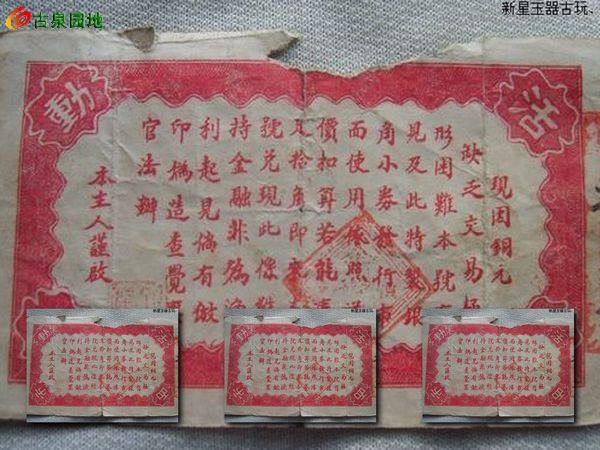 古泉园地
新星玉器古玩、
活
動
現因銅元
缺乏交易極
形困難本號
見及此特製銀
角小券發行市
面使用依照
價扣算若能
足拾角即
號兌現此係維
持金融非為漁
利起見倘有倣
印偽造查覺
官法辦
本主人謹啟